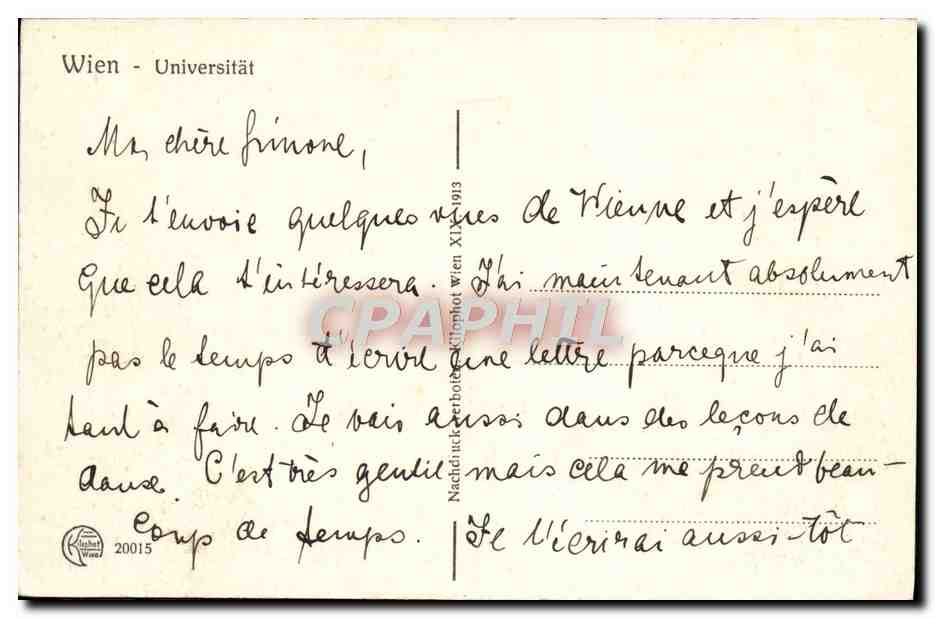 Wien - Universität
Ma chère Simone,
Je t'envoie quelques vues de Vienne et j'espère
que cela t'intéressera. J'ai maintenant absolument
pas le temps d'écrire une lettre parceque j'ai
tant à faire. Je vais aussi dans des leçons de
danse. C'est très gentil mais cela me prend beau-
coup de temps. Je t'écrirai aussi-tôt
Nachdruck verboten Kilophot Wien XIX. 1913
CPAPHIL
Kilophot
Wien
20015